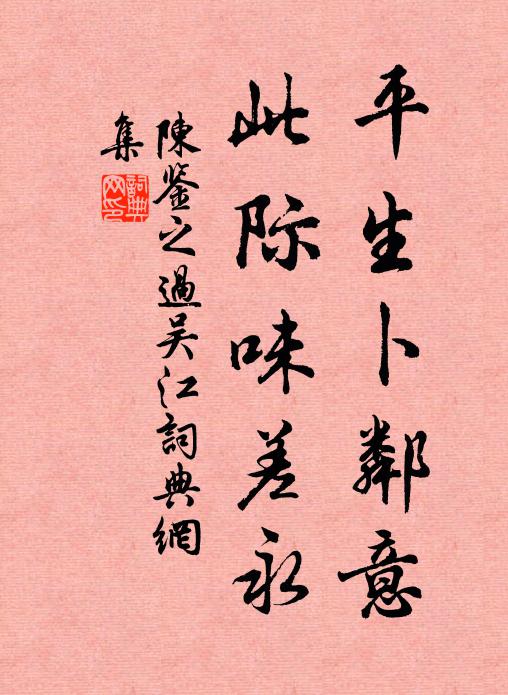 平生卜鄰意
此际味差永
陳鉴之過吴江詞典網
集
詞典
网印